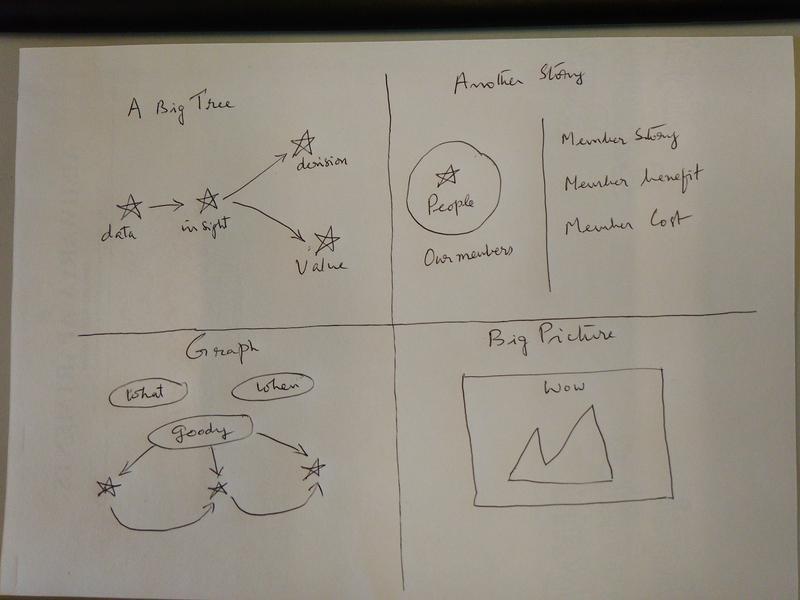 A Big Tree
decision
data
insight
Value
Another Story
People
Our members
Member Story
Member benefit
Member Cost
Graph
What
When
goody
Big Picture
Wow